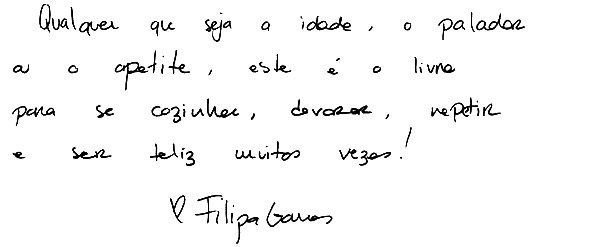 Qualquer que seja a idade, o paladar
ou o apetite, este é o livro
para se cozinhar, devorar, repetir
e ser feliz muitas vezes!
♡ Filipa Gomes